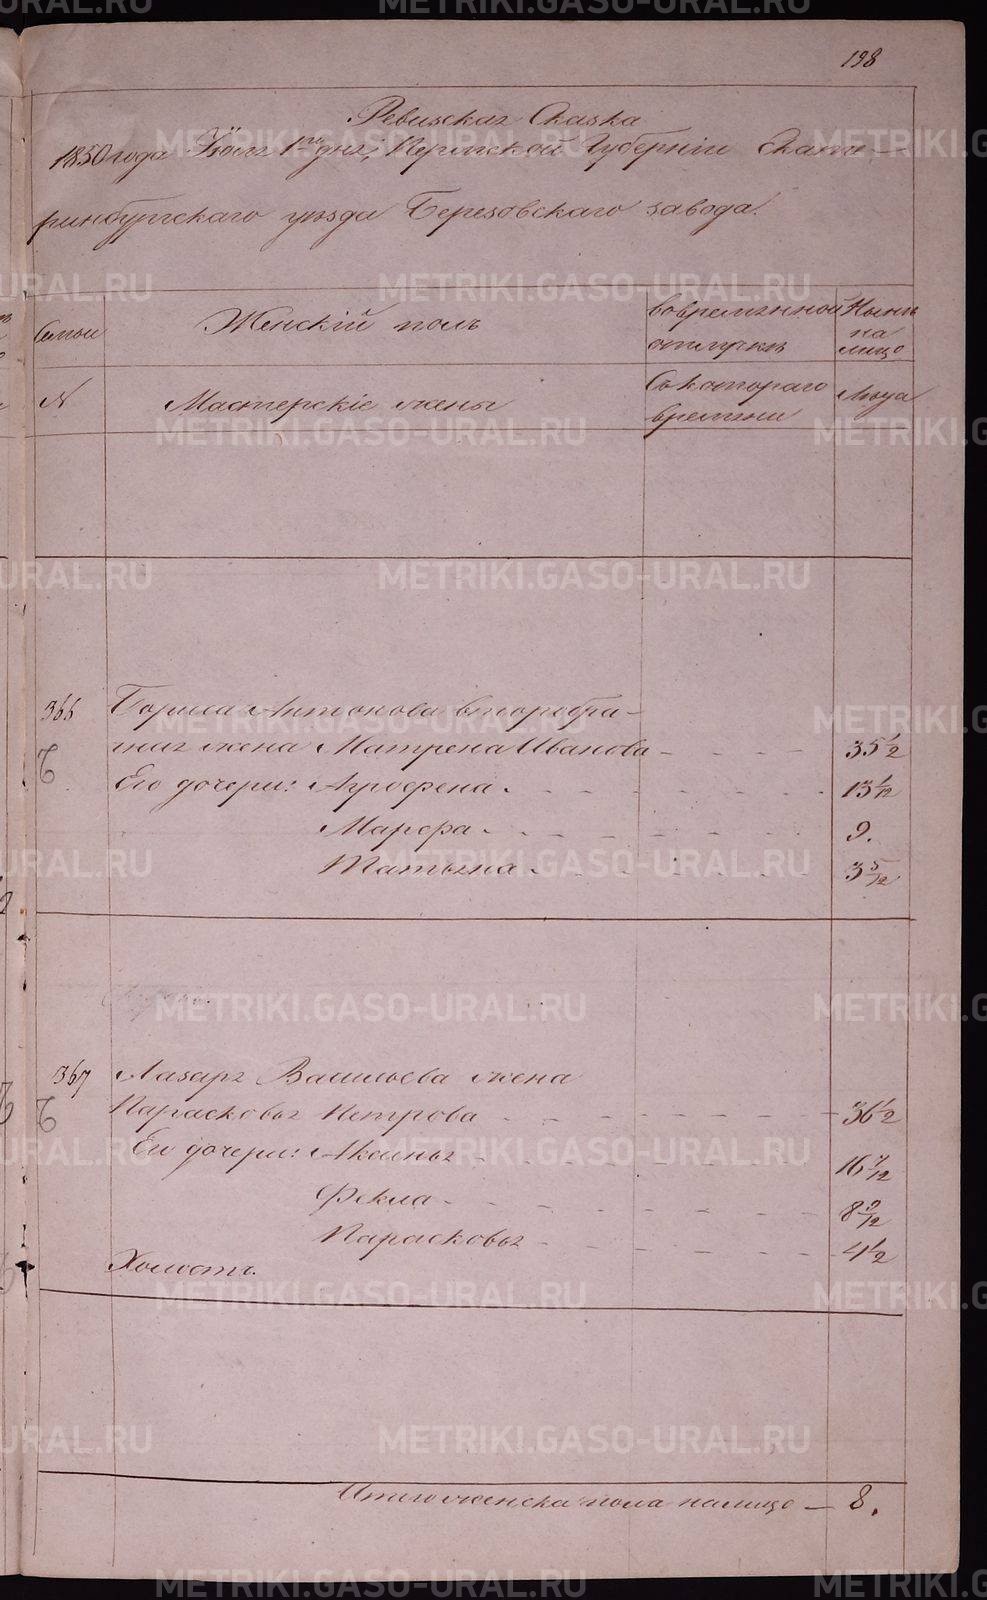 198
Ревизская Сказка
1850 года Іюня 1го дня, Пермской Губерніи Екате-
ринбургскаго уѣзда Березовскаго завода.
Семьи
Женскій полъ
Во временной отлучкѣ
Нынѣ на лицо
N
Мастерскіе жены
Съ котораго времени
Лѣта
366
Бориса Антонова второбра-
тнаго жена Матрена Иванова 35 1/2
Его дочери: Агрофена 13 1/12
Марфа 9.
Татьяна 3 5/12
367
Лазаря Васильева жена
Парасковья Петрова 36 1/2
Его дочери: Аксинья 16 7/12
Фекла 8 9/12
Парасковья 4 1/2
Холостъ.
Итого женска пола налицо — 8.
METRIKI.GASO-URAL.RU